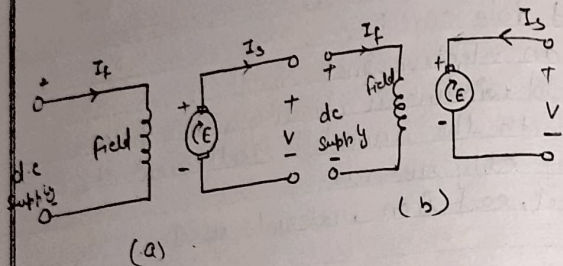 +
I_f
field
d.c
supply
-
I_s
+
E
-
+
V
-
(a)
I_f
+
field
dc
supply
-
I_s
+
E
-
+
V
-
(b)